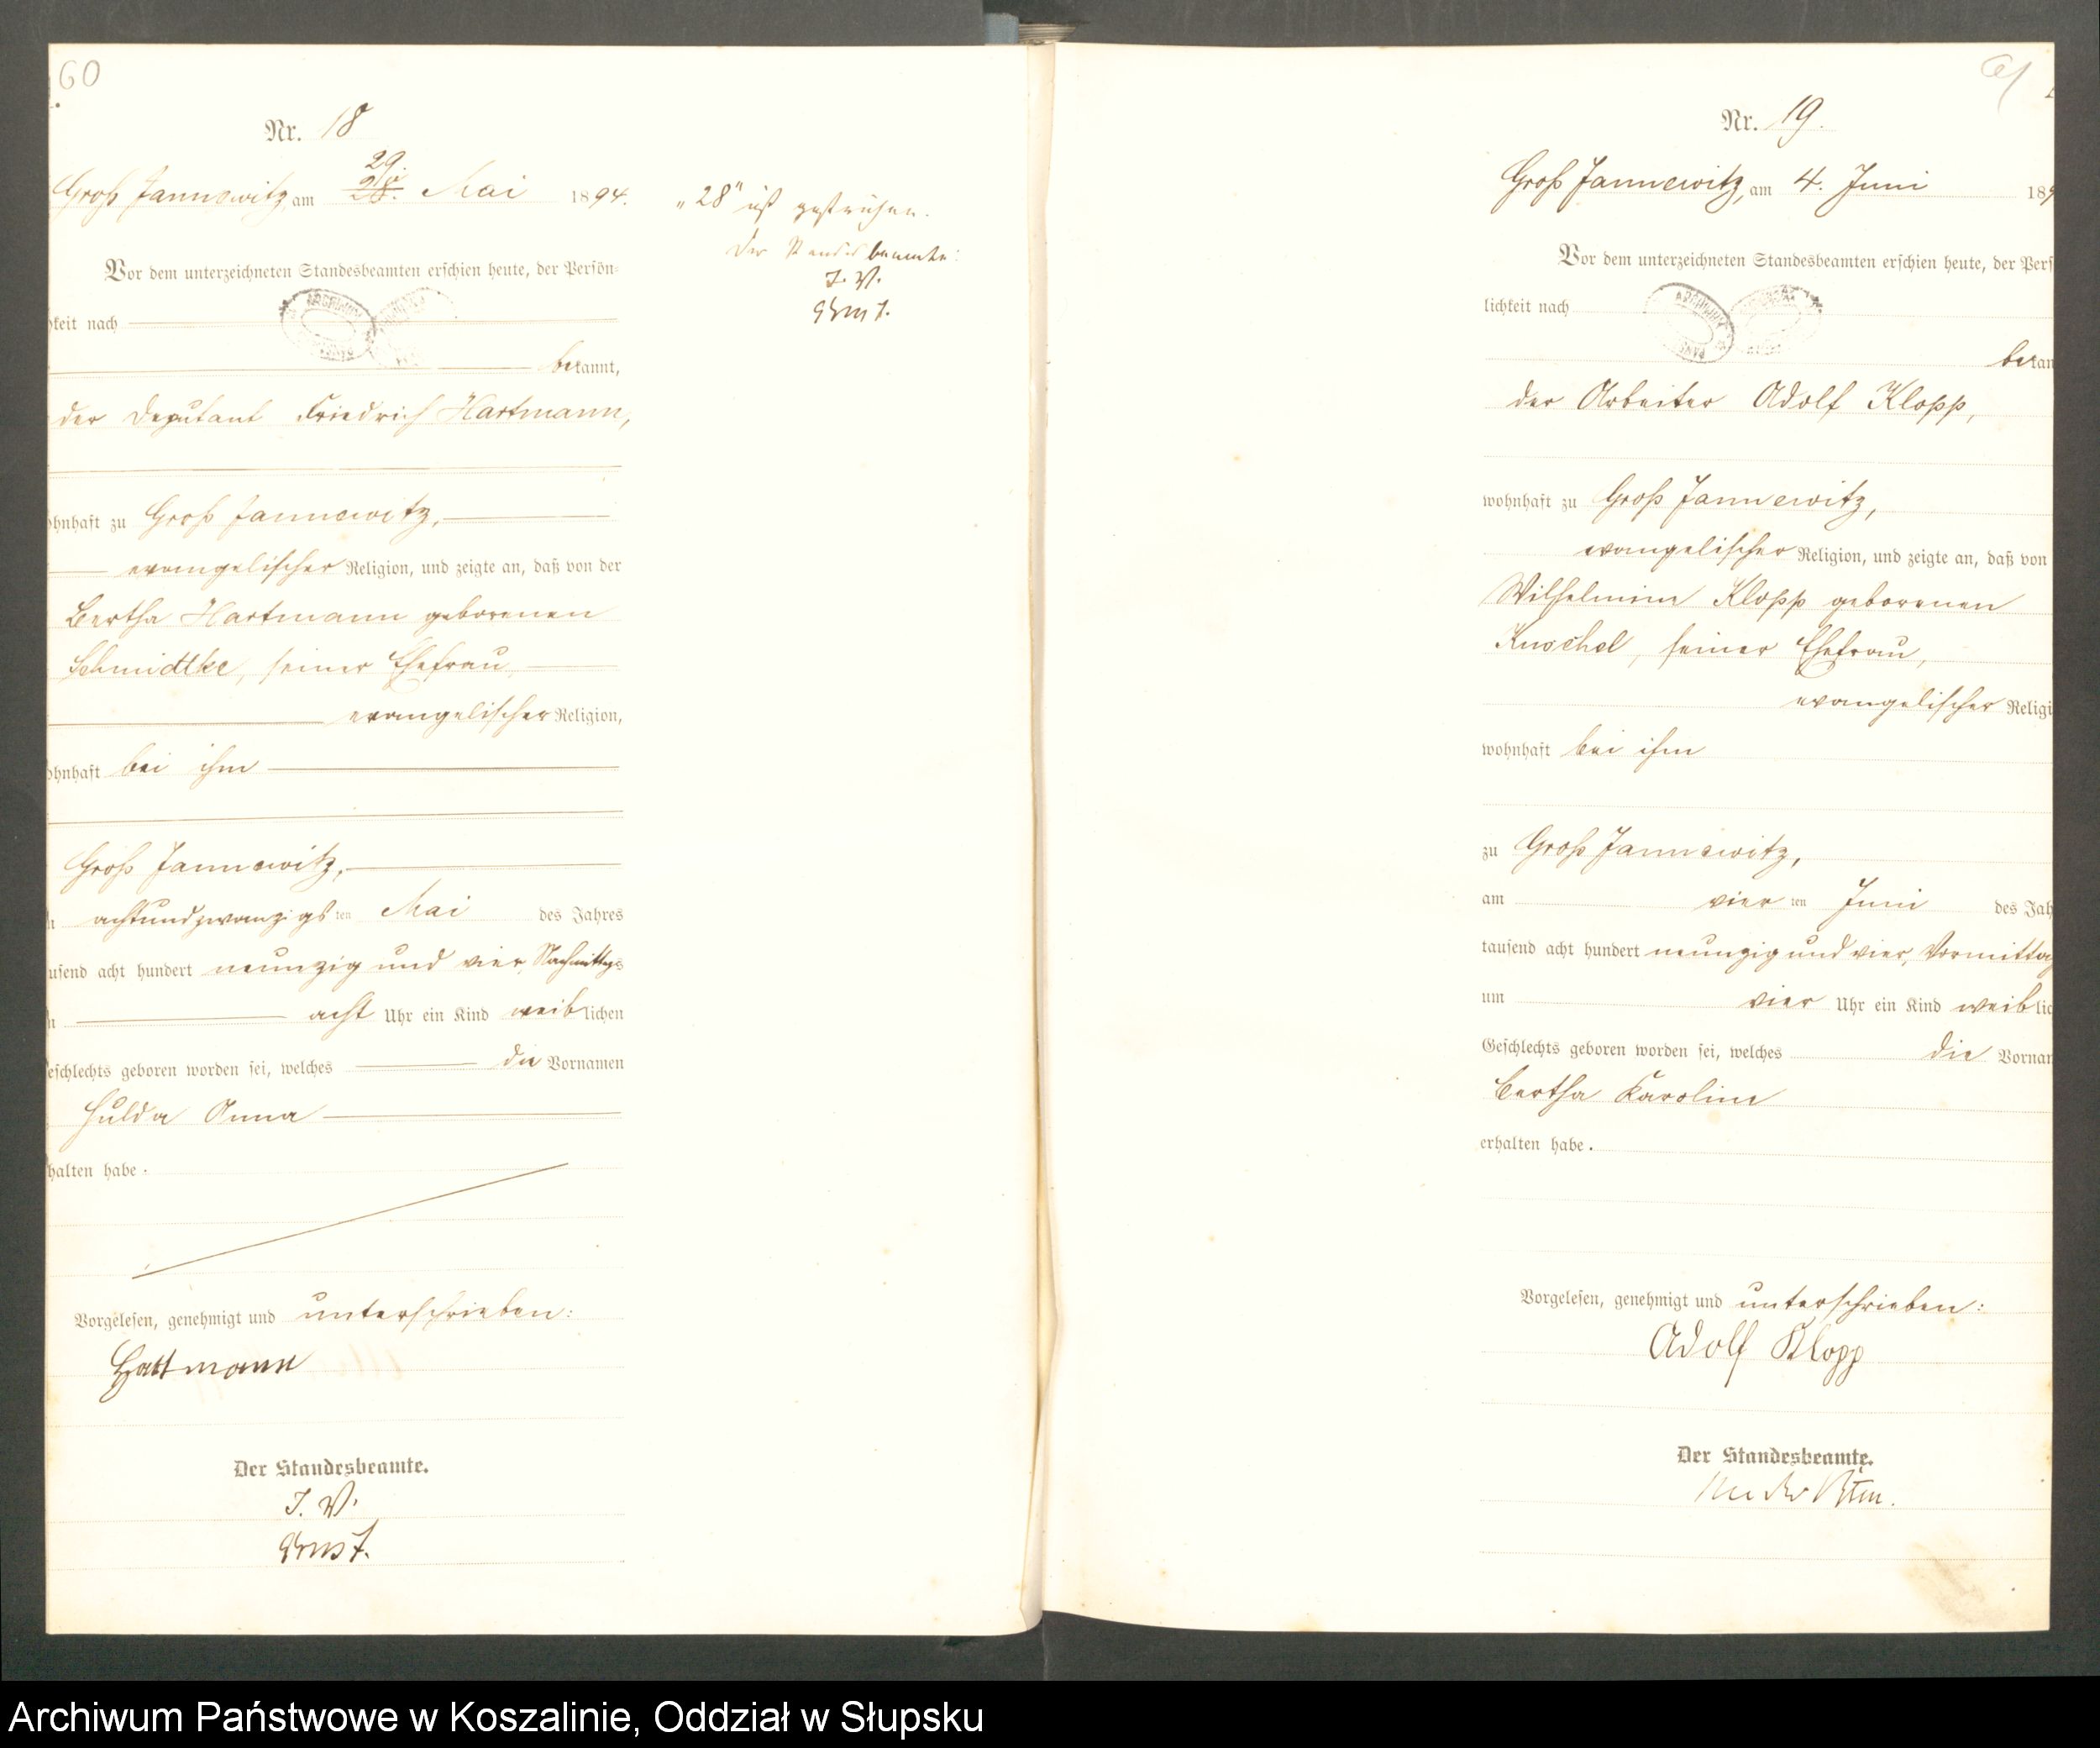 60
Nr. 18
Groß Jannewitz, am 29. 28. Mai 1894.
Vor dem unterzeichneten Standesbeamten erschien heute, der Persön-
hkeit nach
bekannt,
der Deputant Friedrich Hartmann,
ohnhaft zu Groß Jannewitz,
evangelischer Religion, und zeigte an, daß von der
Bertha Hartmann geborenen
Schmidtke, seiner Ehefrau
evangelischer Religion,
ohnhaft bei ihm
Groß Jannewitz,
achtundzwanzigsten Mai des Jahres
usend acht hundert neunzig und vier, Nachmittags
acht Uhr ein Kind weiblichen
eschlechts geboren worden sei, welches die Vornamen
Hulda Anna
halten habe.
Vorgelesen, genehmigt und unterschrieben:
Hartmann
Der Standesbeamte.
J. V.
Ernst.
„28" ist gestrichen.
Der Standesbeamte:
J. V.
Ernst.
61
Nr. 19.
Groß Jannewitz, am 4. Juni 189
Vor dem unterzeichneten Standesbeamten erschien heute, der Pers
lichkeit nach
bekan
der Arbeiter Adolf Klopp,
wohnhaft zu Groß Jannewitz,
evangelischer Religion, und zeigte an, daß von
Wilhelmine Klopp geborenen
Kuschel, seiner Ehefrau,
evangelischer Religi
wohnhaft bei ihm
zu Groß Jannewitz,
am vierten Juni des Jah
tausend acht hundert neunzig und vier, Vormittag
um vier Uhr ein Kind weiblic
Geschlechts geboren worden sei, welches die Vornam
Bertha Karoline
erhalten habe.
Vorgelesen, genehmigt und unterschrieben:
Adolf Klopp
Der Standesbeamte.
Archiwum Państwowe w Koszalinie, Oddział w Słupsku